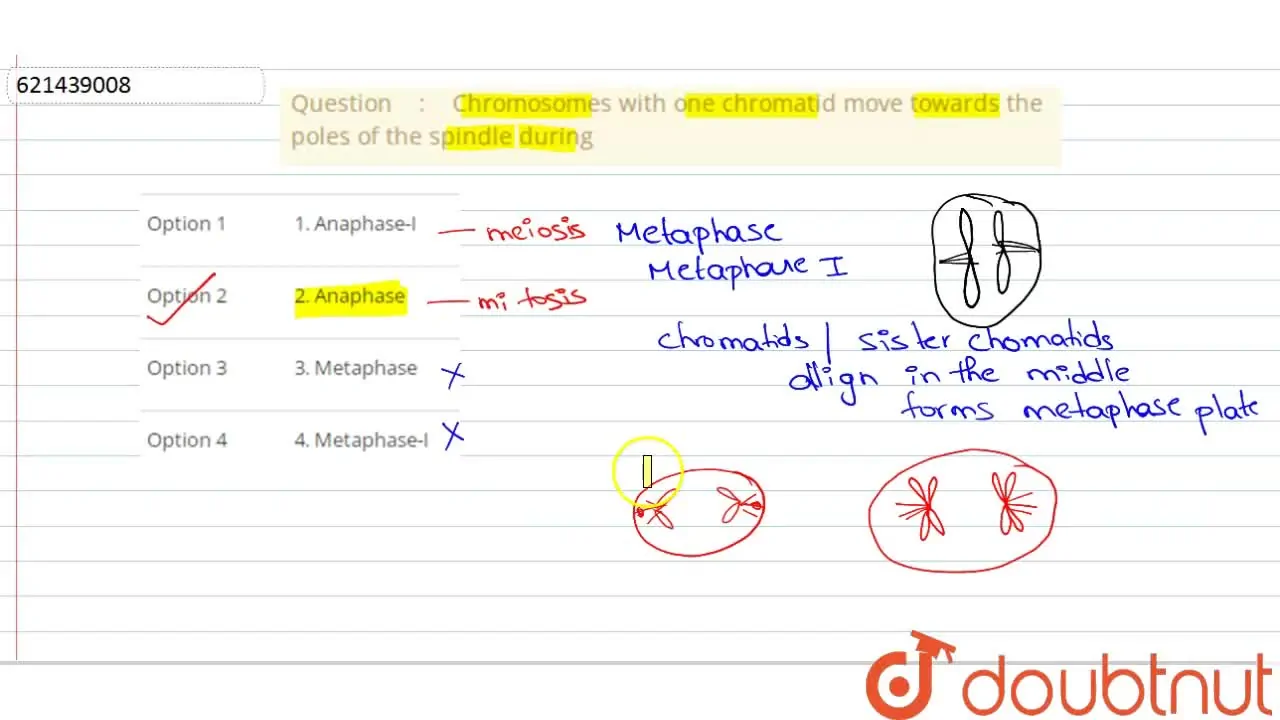 621439008
Question : Chromosomes with one chromatid move towards the
poles of the spindle during
Option 1 1. Anaphase-I — meiosis
Option 2 2. Anaphase — mitosis
Option 3 3. Metaphase X
Option 4 4. Metaphase-I X
Metaphase
Metaphase I
chromatids / sister chomatids
align in the middle
forms metaphase plate
doubtnut